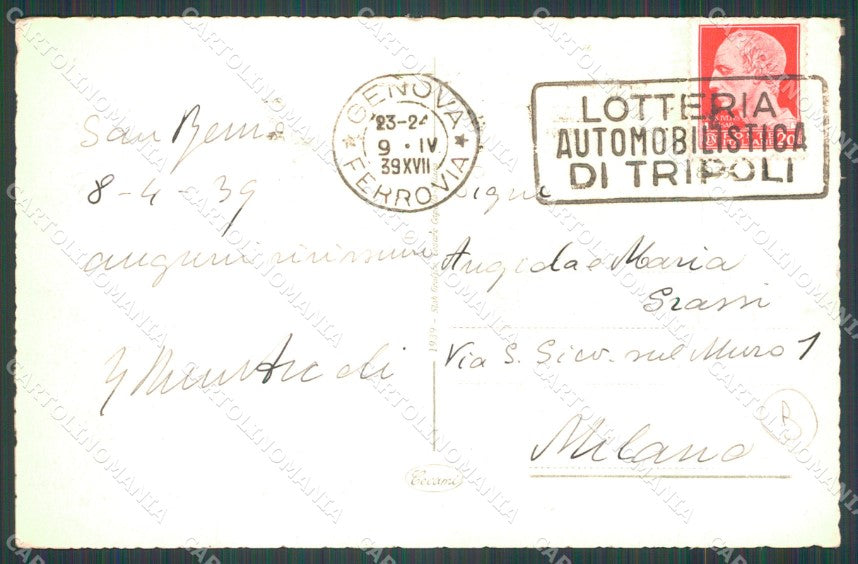 San Remo
8-4-39
auguri vivissimi
GENOVA
23-24
9 · IV
39XVII
FERROVIA
LOTTERIA
AUTOMOBILISTICA
DI TRIPOLI
Signe
Angela e Maria
Grassi
Via S. Giov. sul Muro 1
Milano
1939 - San Remo
CARTOLINOMANIA